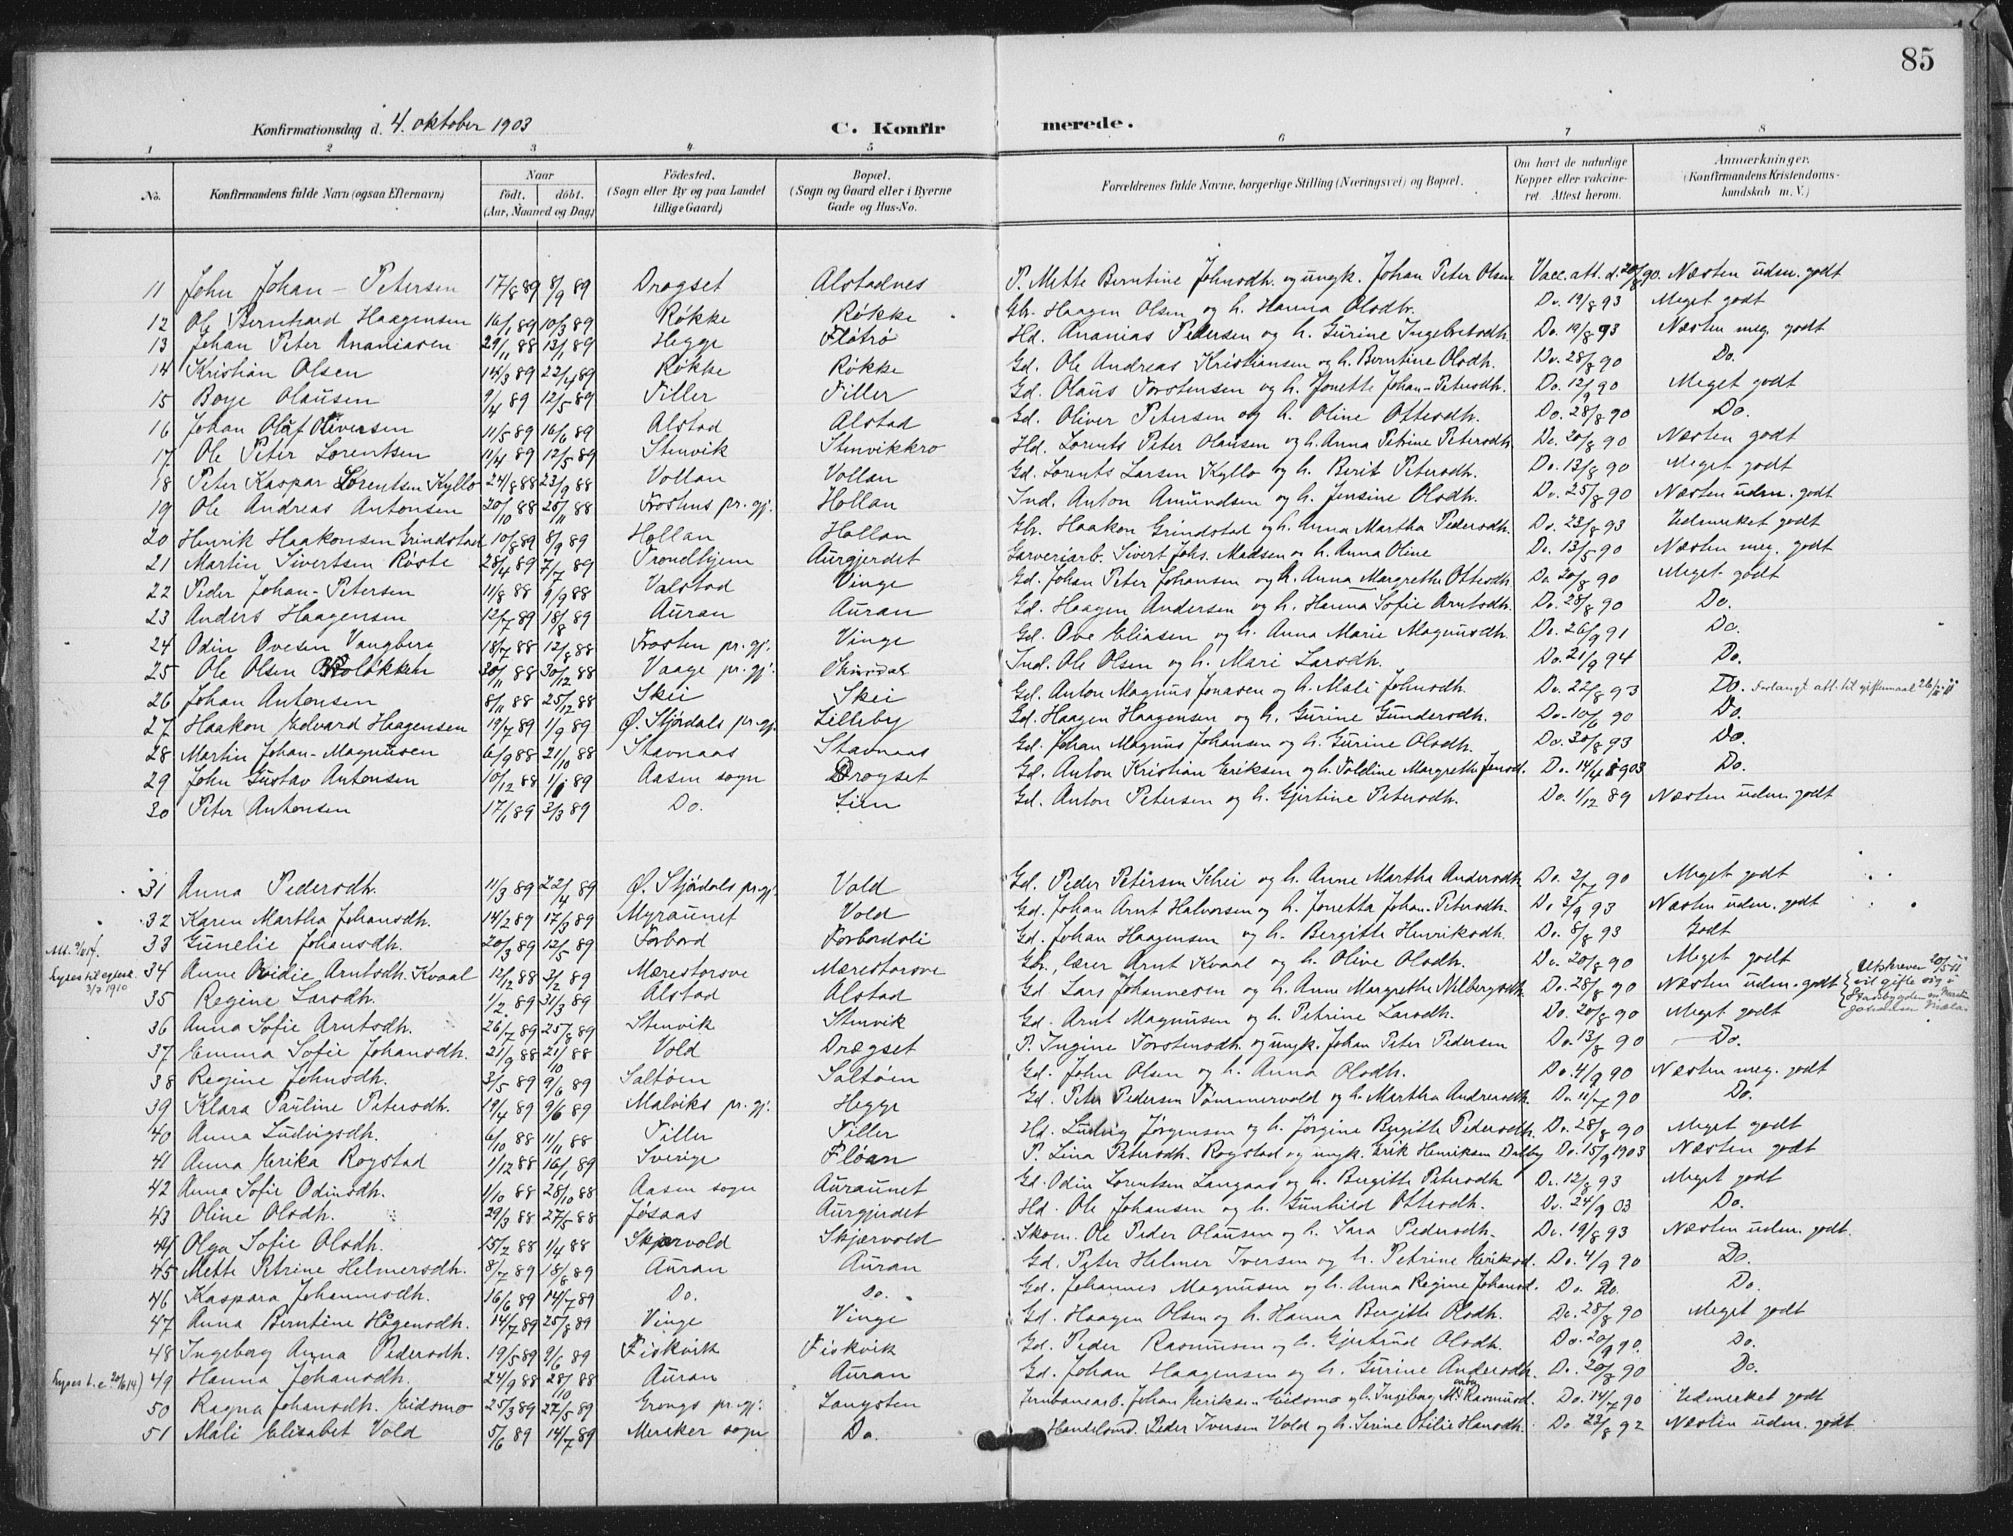 85
Konfirmationsdag d. 4. oktober 1903 C. Konfirmerede.
1 2 3 4 5 6 7 8
No. Konfirmandens fulde Navn (ogsaa Efternavn) Naar født. døbt. (Aar, Maaned og Dag) Fødested. (Sogn eller By og paa Landet tillige Gaard) Bopæl. (Sogn og Gaard eller i Byerne Gade og Hus-No. Forældrenes fulde Navne, borgerlige Stilling (Næringsvei) og Bopæl. Om havt de naturlige Kopper eller vakcineret. Attest herom. Anmærkninger. (Konfirmandens Kristendomskundskab m. V.)
11 John Johan-Petersen 17/8 89 8/9 89 Drogset Alstadnes P. Mette Berntine Johnsdh. og ungk. Johan Peter Olsen Vacc. att. d. 20/8 90. Næsten udm. godt
12 Ole Bernhard Haagensen 16/1 89 10/3 89 Røkke Røkke Gbr. Haagen Olsen og h. Hanna Olsdh. Do. 19/8 93 Meget godt
13 Johan Peter Ananiasen 29/11 88 13/1 89 Hegge Fløtrø Hd. Ananias Pedersen og h. Gurine Ingebretsdh. Do. 19/8 93 Næsten meg. godt
14 Kristian Olsen 14/3 89 22/4 89 Røkke Røkke Gd. Ole Andreas Kristiansen og h. Berntine Olsdh. Do. 28/8 90 Do.
15 Boye Olausen 9/4 89 12/5 89 Tiller Tiller Gd. Olaus Torstensen og h. Jonette Johan-Petersdh. Do. 12/9 90 Meget godt
16 Johan Olaf Oliversen 11/5 89 16/6 89 Alstad Alstad Gd. Oliver Petersen og h. Oline Ottesdh. Do. 28/8 90 Do.
17 Ole Peter Lorentsen 11/4 89 12/5 89 Stenvik Stenvikkro Hd. Lorents Peter Olausen og h. Anna Petrine Petersdh. Do. 20/8 90 Næsten godt
18 Peter Kaspar Lorentsen Kyllo 24/8 88 23/9 88 Vollan Vollan Gd. Lorents Larsen Kyllo og h. Berit Petersdh. Do. 13/8 90 Meget godt
19 Ole Andreas Antonsen 20/10 88 25/11 88 Frostens pr. gj. Hollan Ind. Anton Amundsen og h. Jensine Olsdh. Do. 25/8 90 Næsten udm. godt
20 Henrik Haakonsen Grindstad 10/8 89 8/9 89 Hollan Hollan Gbr. Haakon Grindstad og h. Anna Martha Pedersdh. Do. 23/8 93 Udmerket godt
21 Martin Sivertsen Røste 28/4 89 7/7 89 Trondhjem Aurgjerdet Garveriarb. Sivert Johs. Madsen og h. Anna Oline Do. 13/5 90 Næsten meg. godt
22 Peder Johan-Petersen 11/8 88 9/9 88 Valstad Vinge Gd. Johan Peter Johansen og h. Anna Margrethe Ottesdh. Do. 20/8 90 Meget godt
23 Anders Haagensen 12/7 89 18/8 89 Auran Auran Gd. Haagen Andersen og h. Hanna Sofie Arntsdh. Do. 28/8 90 Do.
24 Odin Ovesen Vangberg 18/7 88 12/8 88 Frosten pr. gj. Vinge Gd. Ove Eliasen og h. Anna Marie Magnusdh. Do. 26/9 91 Do.
25 Ole Olsen 30/11 88 30/12 88 Vaage pr. gj. Ind. Ole Olsen og h. Mari Larsdh. Do. 21/9 94 Do.
26 Johan Antonsen 8/11 88 25/12 88 Skei Skei Gd. Anton Magnus Jonasen og h. Mali Johnsdh. Do. 22/8 93 Do. Forlangt att. til giftermaal 26/11 11
27 Haakon Edvard Haagensen 19/7 89 1/9 89 Ø. Stjørdals pr. gj. Lilleby Gd. Haagen Haagensen og h. Gurine Gundersdh. Do. 10/6 90 Do.
28 Martin Johan-Magnusen 6/9 88 21/10 88 Stavnaas Stavnaas Gd. Johan Magnus Johansen og h. Gurine Olsdh. Do. 30/8 93 Do.
29 John Gustav Antonsen 10/12 88 1/1 89 Aasen sogn Drogset Gd. Anton Kristian Eriksen og h. Foldine Margrethe Jensd. Do. 14/4 1903 Do.
30 Peter Antonsen 17/1 89 3/3 89 Do. Lien Gd. Anton Petersen og h. Gjertine Petersdh. Do. 1/12 89 Næsten udm. godt
31 Anna Pedersdh. 11/3 89 22/4 89 Ø. Stjørdals pr. gj. Vold Gd. Peder Petersen Khei og h. Anne Martha Andersdh. Do. 2/7 90 Meget godt
32 Karen Martha Johansdh. 14/2 89 17/3 89 Myraunet Vold Gd. Johan Arnt Halvorsen og h. Jonetta Johan-Petersdh. Do. 3/9 93 Næsten udm. godt
33 Gunelie Johansdh. 20/3 89 12/5 89 Forbord Forbordsli Gd. Johan Haagensen og h. Bergitte Henriksdh. Do. 8/8 93 Godt
lyses til egtesk. 3/7 1910 34 Anne Ovidie Arntsdh. Kvaal 12/12 88 3/2 89 Mærestorsve Mærestorsve Gbr., lærer Arnt Kvaal og h. Olive Olsdh. Do. 20/8 90 Meget godt
35 Regine Larsdh. 1/2 89 31/3 89 Alstad Alstad Gd Lars Johannesen og h. Anne Margrethe Nilbergsdh. Do. 28/8 90 Næsten udm. godt Utskreven 20/5 11 vil gifte sig i Stadsbygden m. Martin
36 Anna Sofie Arntsdh. 26/7 89 25/8 89 Stenvik Stenvik Gd. Arnt Magnusen og h. Petrine Larsdh. Do. 20/8 90 Meget godt
37 Emma Sofie Johansdh. 21/9 88 21/10 88 Vold Drægset P. Ingine Torstensdh. og ungk. Johan Peter Pedersen Do. 13/8 90 Do.
38 Regine Johnsdh. 3/5 89 9/6 89 Saltøen Saltøen Gd. John Olsen og h. Anna Olsdh. Do. 4/9 90 Næsten meg. godt
39 Klara Pauline Petersdh. 19/4 89 9/6 89 Malviks pr. gj. Hegge Gd. Peter Pedersen Tømmervold og h. Martha Andersdh. Do. 11/7 90 Do.
40 Anna Ludvigsdh. 6/10 88 11/11 88 Tiller Tiller Hd. Ludvig Jørgensen og h. Jørgine Bergitte Pedersdh. Do. 28/8 90 Meget godt
41 Anna Erika Rogstad 1/12 88 16/1 89 Sverige Floan P. Lina Petersdh. Rogstad og ungk. Erik Henriksen Dalby Do. 15/9 1903 Næsten godt
42 Anna Sofie Odinsdh. 1/10 88 28/10 88 Aasen sogn Auraunet Gd. Odin Lorentsen Langaas og h. Bergitte Petersdh. Do. 12/8 93 Meget godt
43 Oline Olsdh. 29/3 88 27/5 88 Jøsaas Aurgjerdet Hd. Ole Johansen og h. Gunhild Ottesdh. Do. 24/9 03 Do.
44 Olga Sofie Olsdh. 15/2 88 1/4 88 Skjervold Skjærvold Skom. Ole Peder Olausen og h. Sara Pedersdh. Do. 19/8 93 Næsten udm. godt.
45 Mette Petrine Helmersdh. 8/7 89 18/8 89 Auran Auran Gd. Peter Helmer Iversen og h. Petrine Eriksd. Do. 4/9 90 Do.
46 Kaspara Johannesdh. 16/6 89 14/7 89 Do. Do. Gd. Johannes Magnusen og h. Anna Regine Johansd. Do. Do. Do.
47 Anna Berntine Hågensdh. 14/7 89 25/8 89 Vinge Vinge Gd. Haagen Olsen og h. Hanna Bergitte Olsdh. Do. 28/8 90 Meget godt
48 Ingeborg Anna Pedersdh. 19/5 89 9/6 89 Fiskvik Fiskvik Gd. Peder Rasmusen og h. Gjertrud Olsdh. Do. 20/9 90. Do.
lyses t. e. 20/6 14) 49 Hanna Johansdh. 24/9 88 28/10 88 Auran Auran Gd. Johan Haagensen og h. Gurine Andersdh. Do. 20/8 90 Do.
50 Ragna Johansdh. Eidsmo 25/3 89 27/5 89 Grongs pr. gj. Langsten Jernbanearb. Johan Eriksen Eidsmo og h. Ingeborg M. Rasmusd. Do. 14/7 90 Udmerket godt
51 Mali Elisabet Vold 5/6 89 14/7 89 Meraker sogn Do. Handelsmd. Peder Iversen Vold og h. Sevine Otilie Hansdh. Do 23/8 92 Næsten udm. godt